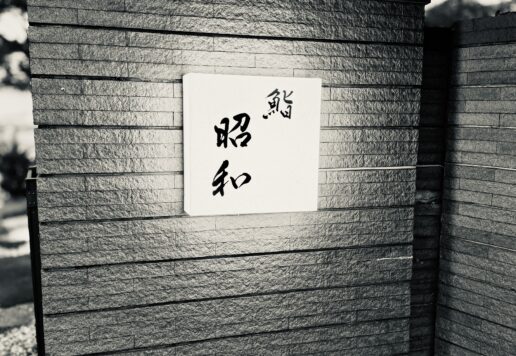 鮨
昭和